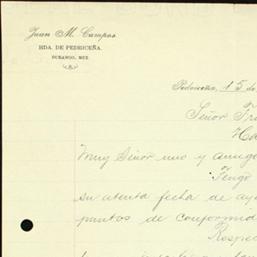 Juan M. Campos
HDA. DE PEDRICEÑA.
DURANGO, MEX
Pedriceña, 15 de
Señor Fra
Ha
Muy Señor mio y amigo
Tengo
su atenta fecha de aye
puntos de conformid
Respec